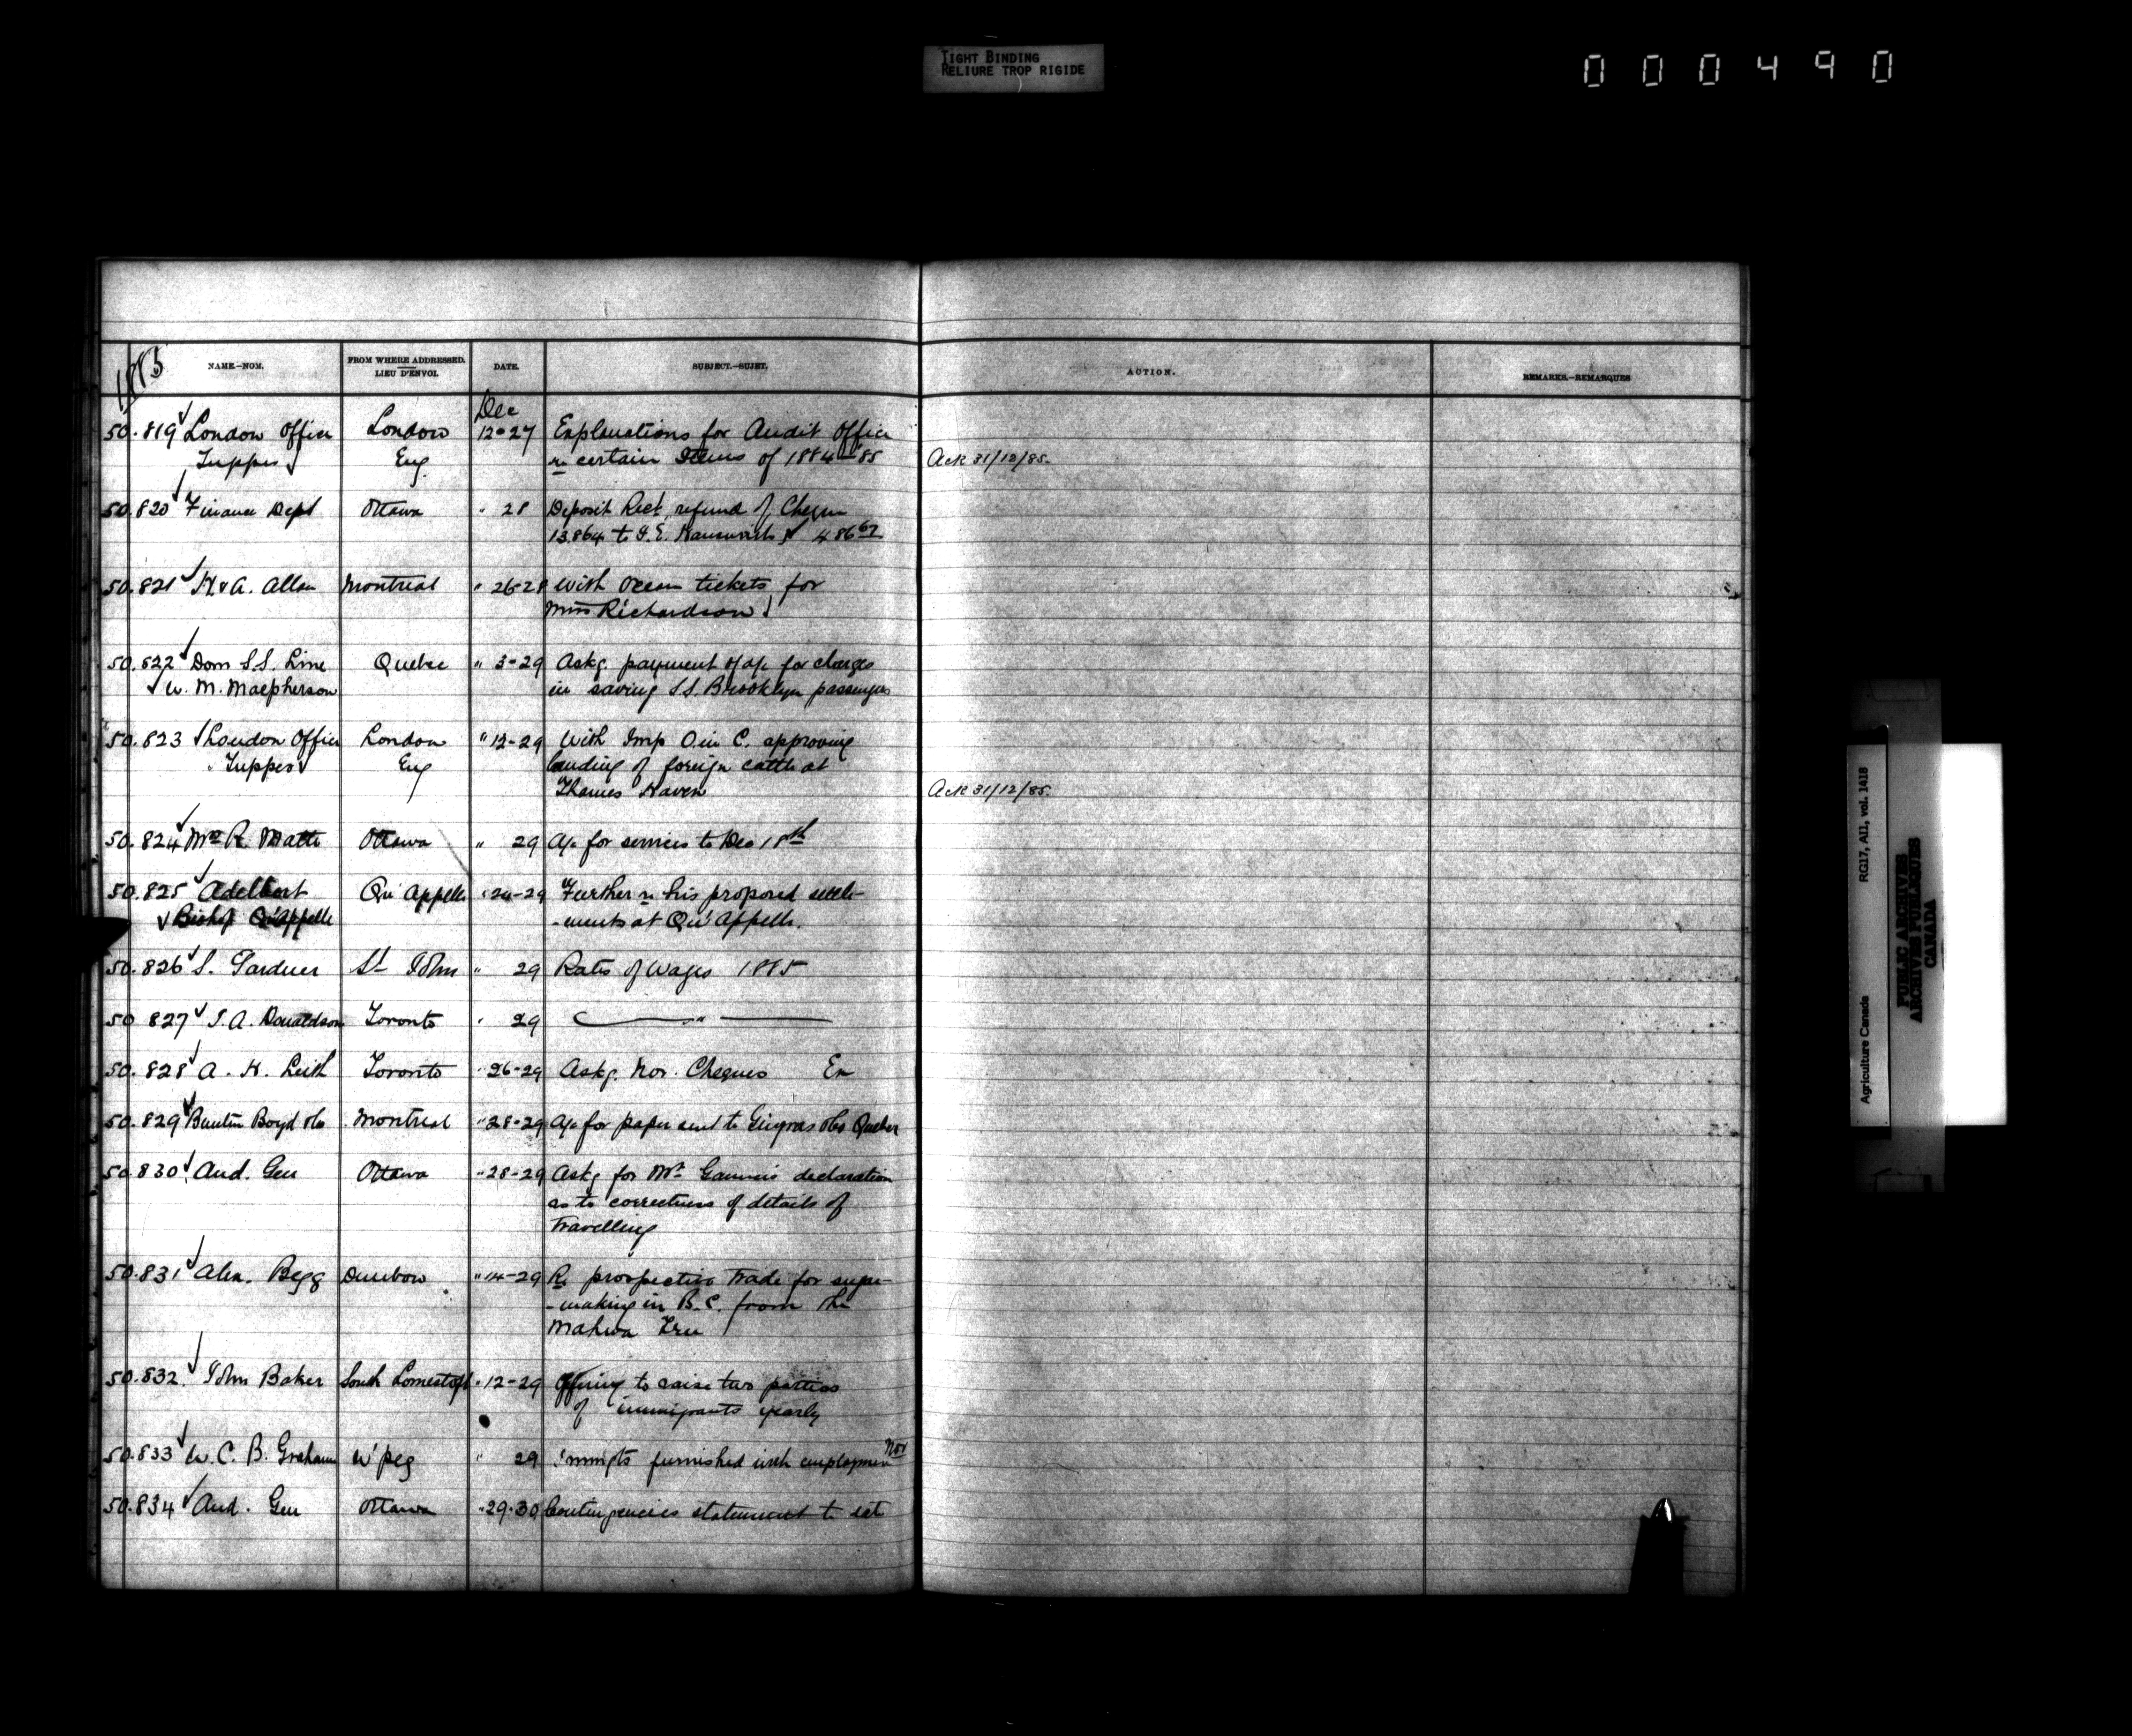 TIGHT BINDING
RELIURE TROP RIGIDE
000490
1885
NAME.-NOM.
FROM WHERE ADDRESSED.
LIEU D'ENVOI.
DATE.
SUBJECT.-SUJET.
ACTION.
REMARKS.-REMARQUES
Dec
50.819 London Office London 12-27 Explanations for Audit Office
Tupper Eng. re certain Items of 1884-85 Ack 31/12/85.
50.820 Finance Dept Ottawa " 28 Deposit Rect. refund of Cheque
13.864 to G.E. 486 67
50.821 H & A. Allan Montreal " 26-28 With Ocean tickets for
Richardson
50.822 Dom S.S. Line Quebec " 3-29 Askg. payment of a/c for charges
W. M. Macpherson in saving S.S. Brooklyn passengers
50.823 London Office London " 12-29 With Imp O. in C. approving
" Tupper Eng landing of foreign cattle at
Thames Haven Ack 31/12/85.
50.824 R. Matte Ottawa " 29 A/c for services to Dec 18th
50.825 Adelbert Qu'Appelle " 24-29 Further re his proposed settle-
Bishop Qu'Appelle -ments at Qu'Appelle.
50.826 S. Gardner St John " 29 Rates of Wages 1885
50.827 J.A. Donaldson Toronto " 29 "
50.828 A. H. Leith Toronto " 26-29 Askg. Nov. Cheques
50.829 Buntin Boyd & Co Montreal " 28-29 A/c for paper sent to Gingras & Co Quebec
50.830 Aud. Gen Ottawa " 28-29 Askg for Mr. declaration
as to correctness of details of
travelling
50.831 Alex. Begg Dunbow " 14-29 Re prospective trade for sugar-
-making in B.C. from the
Mahwa Tree
50.832 John Baker South Lowestoft " 12-29 Offering to raise two parties
of immigrants yearly
50.833 W. C. B. Grahame W'peg " 29 Immigts furnished with employment Nov
50.834 Aud. Gen Ottawa " 29-30 Contingencies statement to
Agriculture Canada RG17, AII, vol. 1418
PUBLIC ARCHIVES
ARCHIVES PUBLIQUES
CANADA